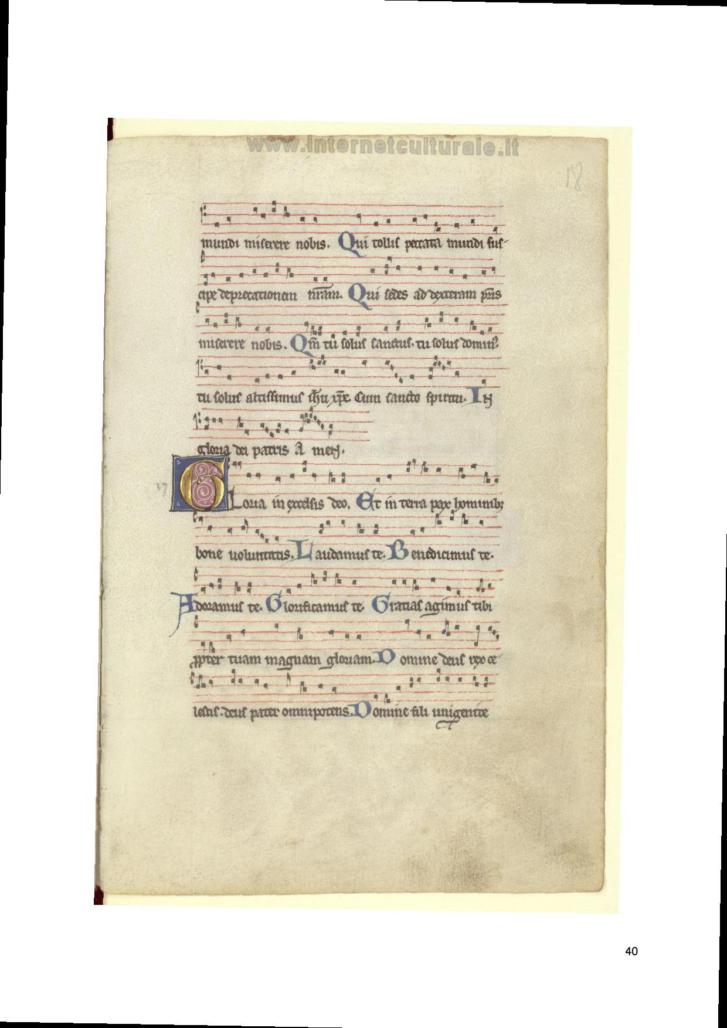 www.internetculturale.it
18
mundi miserere nobis. Qui tollis peccata mundi sus-
cipe deprecationem nr̄am. Qui sedes ad dexteram pr̄is
miserere nobis. Qm̄ tu solus sanctus. tu solus domin9.
tu solus altissimus ih̄u xp̄e. Cum sancto spiritu. In
gloria dei patris A men.
17
Gloria in excelsis deo. Et in terra pax hominib;
bone voluntatis. Laudamus te. Benedicimus te.
Adoramus te. Glorificamus te. Gratias agimus tibi
ꝓpter tuam magnam gloriam. Domine deus rex ce
lestis. deus pater omnipotens. Domine fili unigenite
40